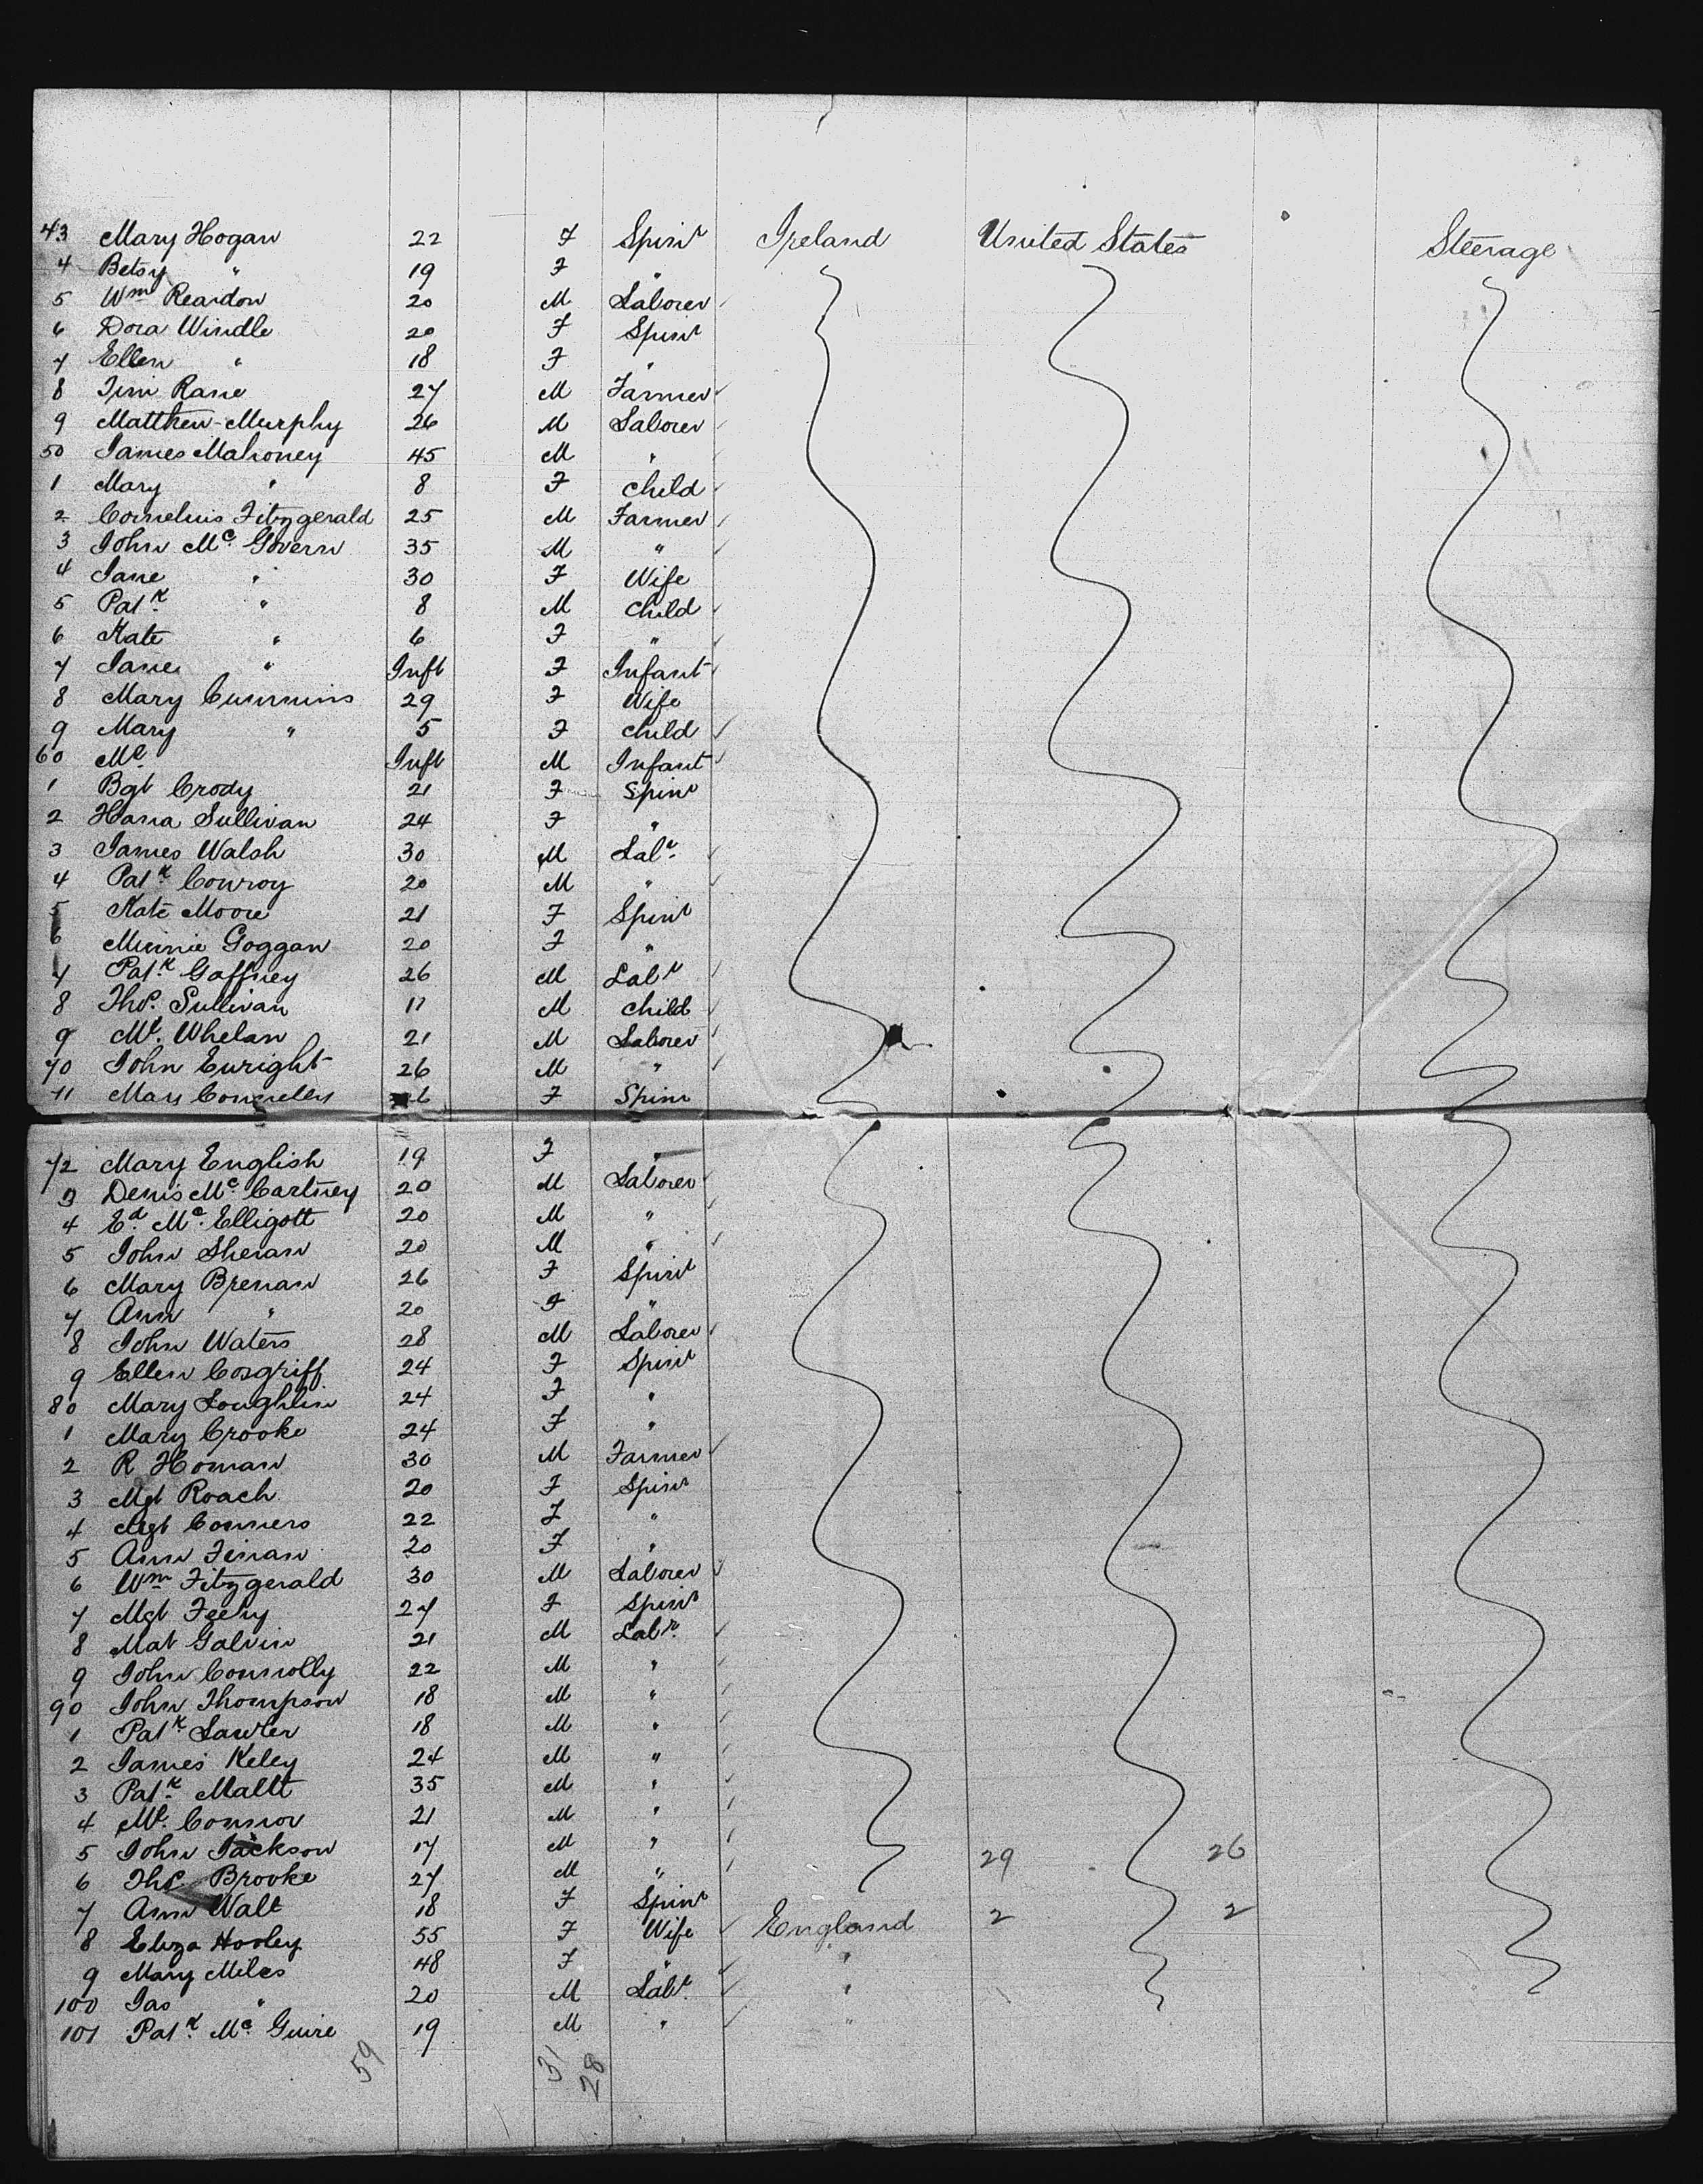 43 Mary Hogan 22 F Spinr Ireland United States Steerage
4 Betsy " 19 F "
5 Wm Reardon 20 M Laborer
6 Dora Windle 20 F Spinr
7 Ellen " 18 F "
8 Tim Rane 27 M Farmer
9 Matthew Murphy 26 M Laborer
50 James Mahoney 45 M "
1 Mary " 8 F Child
2 Cornelius Fitzgerald 25 M Farmer
3 John Mc Govern 35 M "
4 Jane " 30 F Wife
5 Patk " 8 M Child
6 Kate " 6 F "
7 Jane " Inft F Infant
8 Mary Cummins 29 F Wife
9 Mary " 5 F Child
60 Ml Inft M Infant
1 Bgt Crody 21 F Spinr
2 Hana Sullivan 24 F "
3 James Walsh 30 M Labr
4 Patk Conroy 20 M "
5 Kate Moore 21 F Spinr
6 Minnie Goggan 20 F "
7 Patk Gaffney 26 M Labr
8 Thos. Sullivan 11 M Child
9 Ml. Whelan 21 M Laborer
70 John Enright 26 M "
71 Mary F Spinr
72 Mary English 19 F "
3 Denis Mc Cartney 20 M Laborer
4 Ed Mc Elligott 20 M "
5 John Sheran 20 M "
6 Mary Brenan 26 F Spinr
7 Ann " 20 F "
8 John Waters 28 M Laborer
9 Ellen Cosgriff 24 F Spinr
80 Mary Loughlin 24 F "
1 Mary Crooke 24 F "
2 R Homan 30 M Farmer
3 Mgt Roach 20 F Spinr
4 Mgt Conners 22 F "
5 Ann Finan 20 F "
6 Wm Fitzgerald 30 M Laborer
7 Mgt Feehy 27 F Spinr
8 Mat Galvin 21 M Labr
9 John Connolly 22 M "
90 John Thompson 18 M "
1 Patk Lawler 18 M "
2 James Keley 24 M "
3 Patk Mallt 35 M "
4 Ml. Connor 21 M "
5 John Jackson 17 M " 29 26
6 Thos Brooke 27 M "
7 Ann Walt 18 F Spinr 2 2
8 Eliza Hooley 55 F Wife England
9 Mary Miles 48 F " "
100 Jas " 20 M Labr "
101 Patk Mc Guire 19 M " "
59 31 28